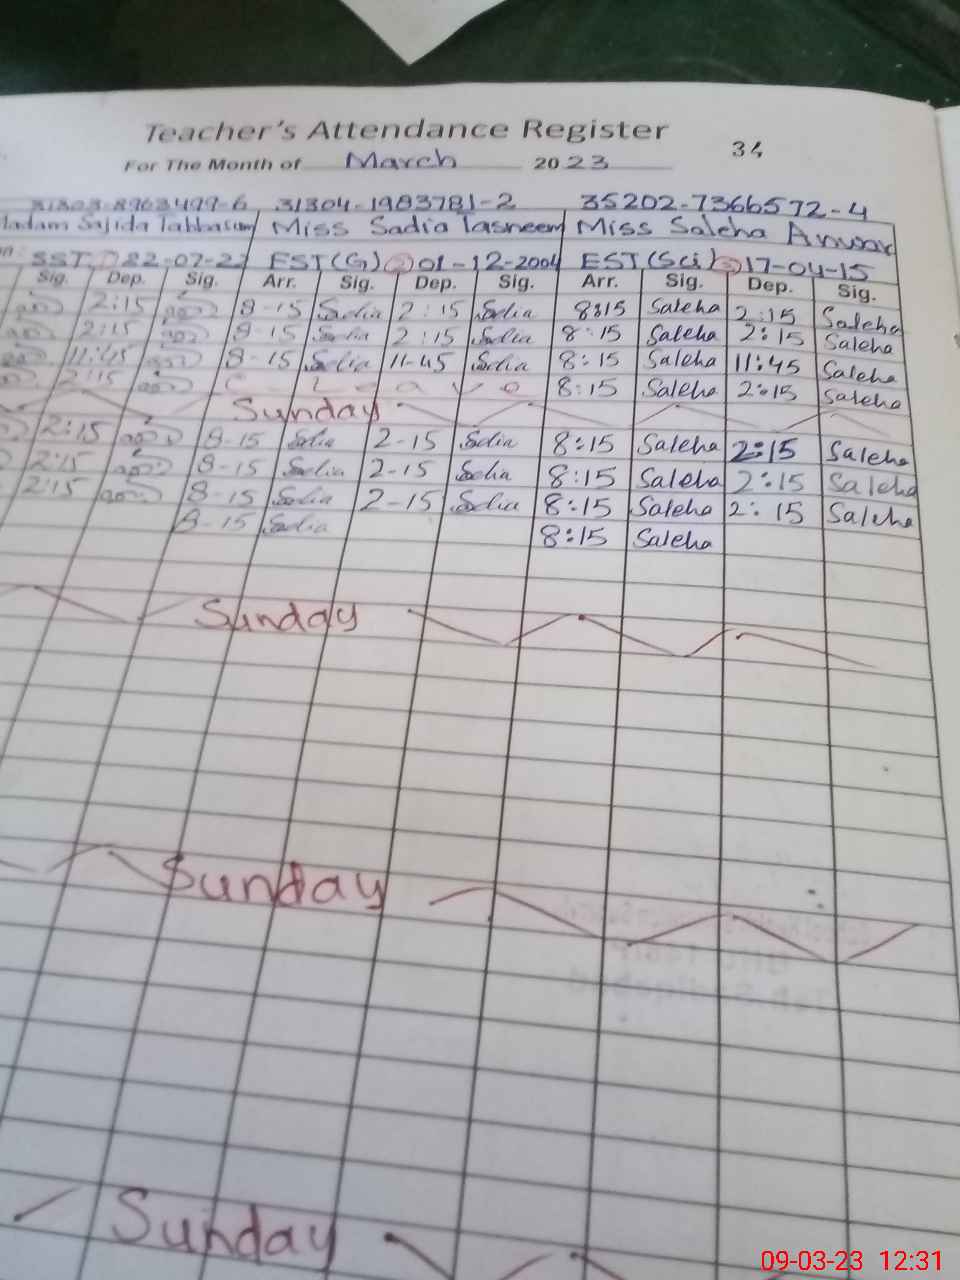 Teacher's Attendance Register
34
For The Month of March 2023
31303-8963499-6 31304-1983781-2 35202-7366572-4
Madam Sajida Tabbasum Miss Sadia Tasneem Miss Saleha Anwar
SST 22-07-22 EST(G) 01-12-2004 EST(Sci) 17-04-15
Sig. Dep. Sig. Arr. Sig. Dep. Sig. Arr. Sig. Dep. Sig.
2:15 8-15 Sadia 2:15 Sadia 8:15 Saleha 2:15 Saleha
2:15 8-15 Sadia 2:15 Sadia 8:15 Saleha 2:15 Saleha
11:45 8-15 Sadia 11-45 Sadia 8:15 Saleha 11:45 Saleha
2:15 8:15 Saleha 2:15 Saleha
Sunday
2:15 8-15 Sadia 2-15 Sadia 8:15 Saleha 2:15 Saleha
2:15 8-15 Sadia 2-15 Sadia 8:15 Saleha 2:15 Saleha
2:15 8-15 Sadia 2-15 Sadia 8:15 Saleha 2:15 Saleha
8-15 Sadia 8:15 Saleha
Sunday
Sunday
Sunday
09-03-23 12:31